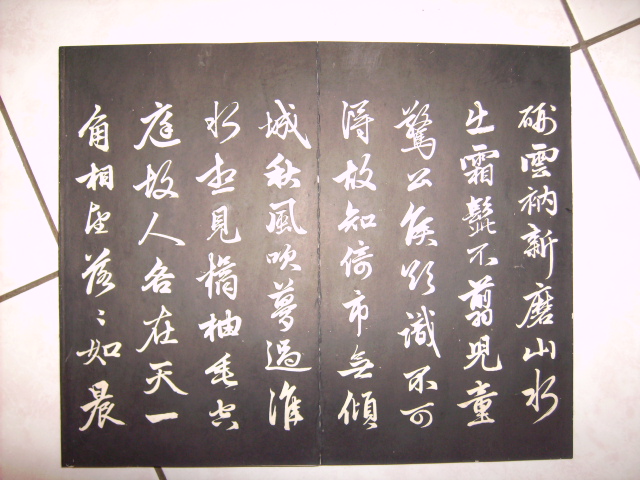 硎雲衲新磨山水
出霜髭不翦兒童
驚公侯欲識不可
得故知倚市無傾
城秋風吹夢過淮
水想見橘柚垂空
庭故人各在天一
角相望落々如晨